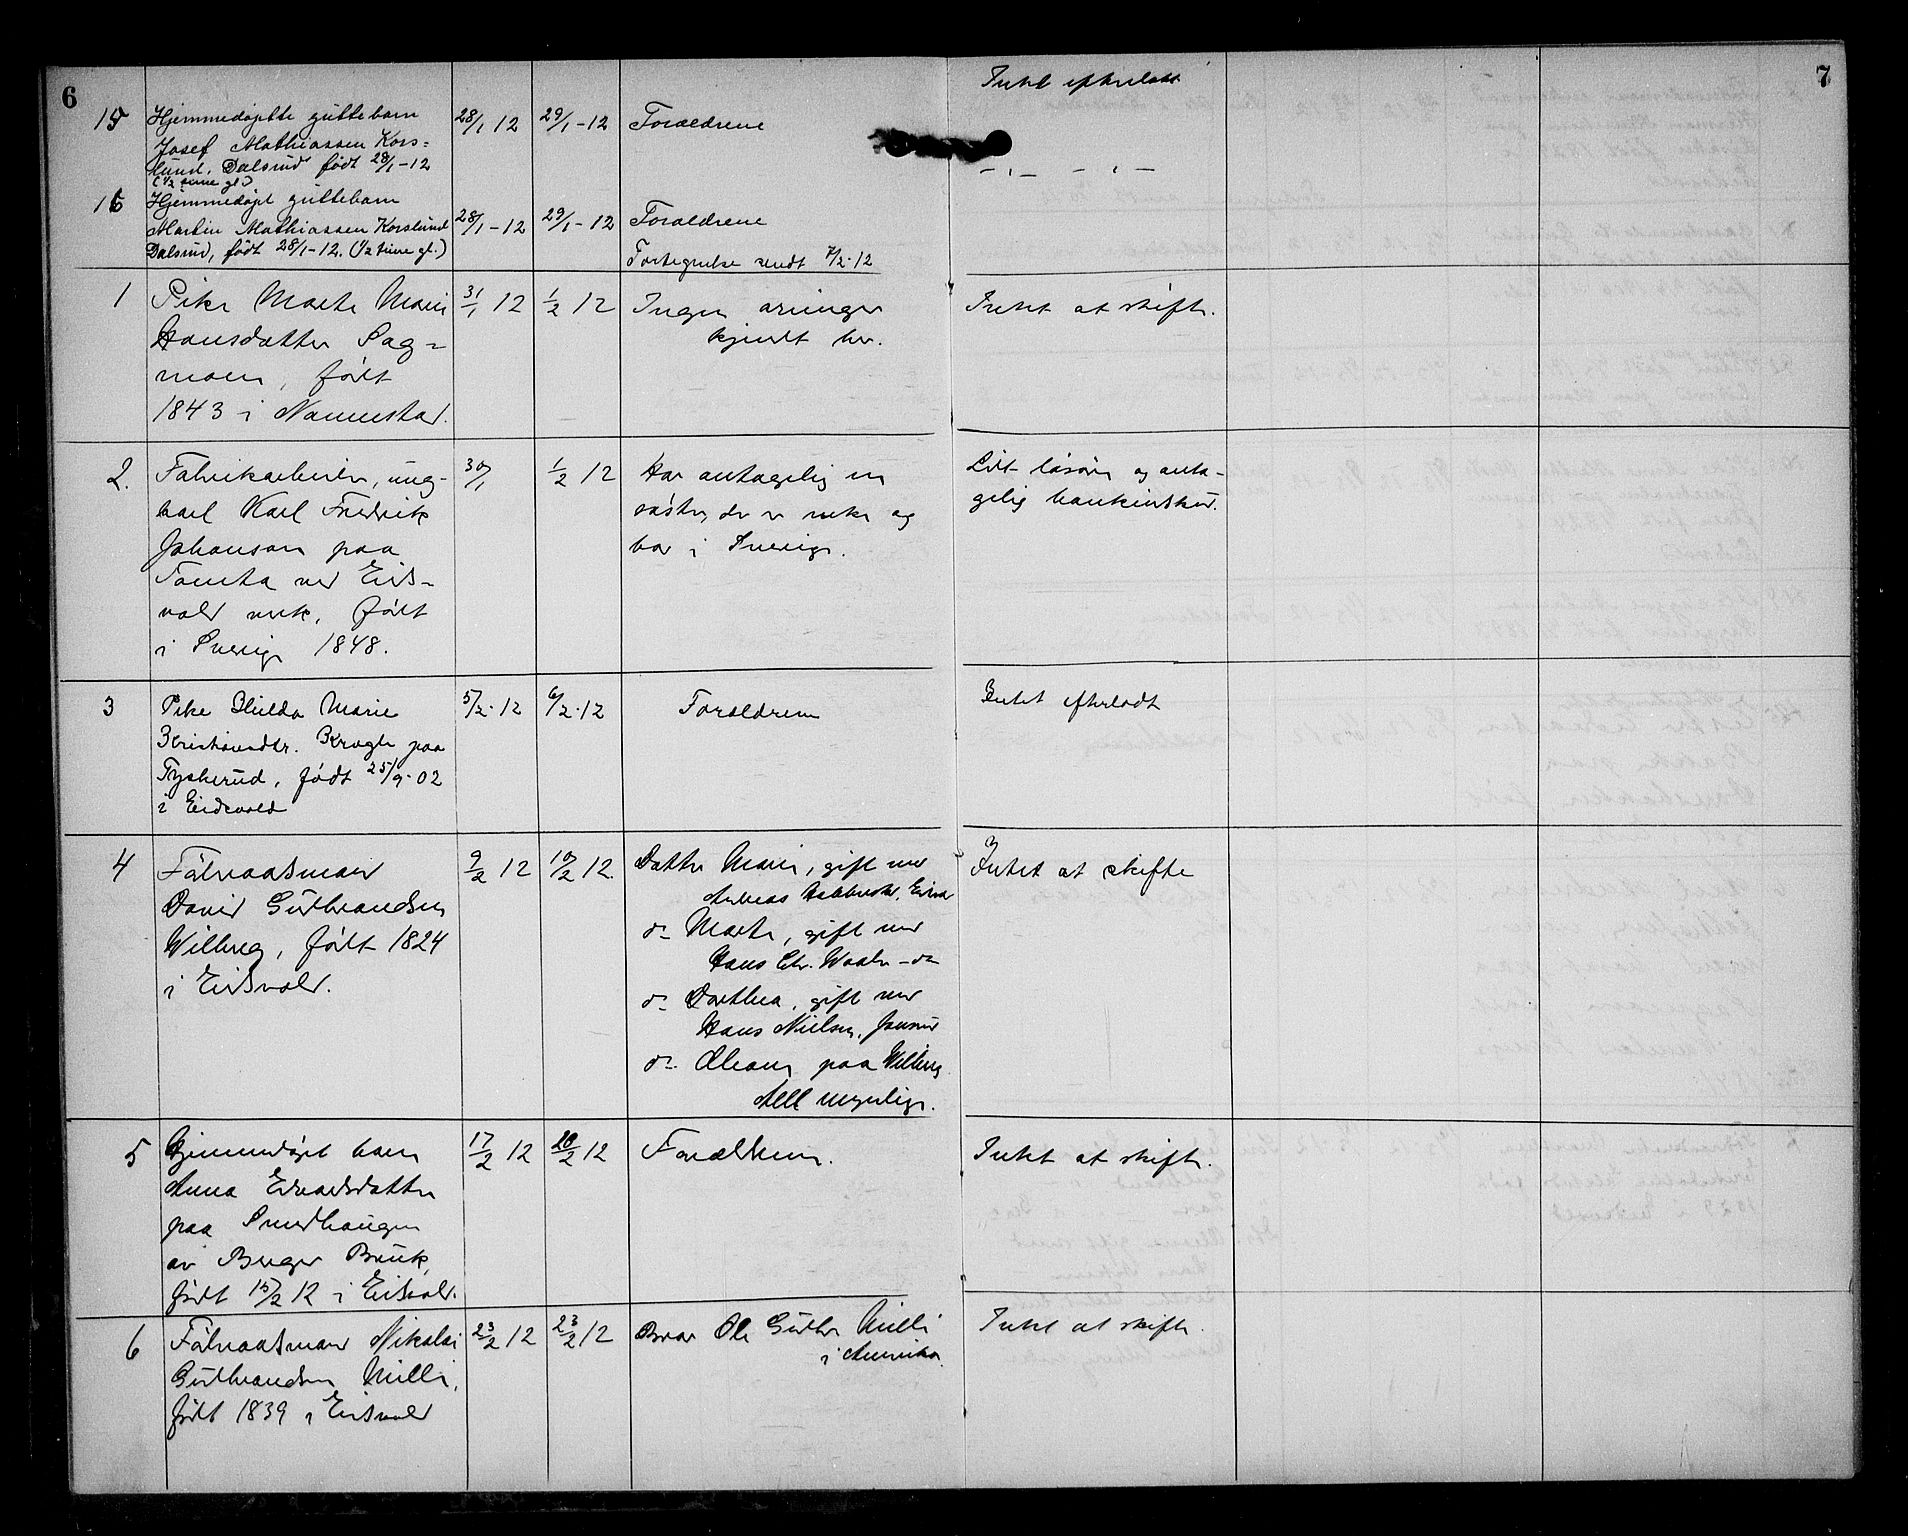 6
7
Intet efterladt
15 Hjemmedøpte guttebarn 28/1 12 29/1-12 Forældrene
Josef Mathiassen Kors=
lund, Dalsrud født 28/1-12 -„- -„-
(1/2 time gl)
16 Hjemmedøpt guttebarn
Martin Mathiassen Korslund 28/1-12 29/1-12 Forældrene
Dalsrud, født 28/1-12. (1/2 time gl.) Fortegnelse sendt 7/2-12
1 Pike Marte Marie 31/1 12 1/2 12 Ingen arvinger Intet at skifte.
Hansdatter Sag= kjendt her.
moen, født
1843 i Nannestad.
2. Fabrikarbeider, ung= 30/1 1/2 12 Har antagelig en Litt løsøre og anta-
karl Karl Fredrik søster, der er enke og gelig bankindskud.
Johanson paa bor i Sverige.
Tomta ved Eids-
vold verk, født
i Sverige 1848.
3 Pike Hulda Marie 5/2-12 6/2-12 Forældrene Intet efterladt
Kristiansdtr. Krogh paa
Tyskerud, født 25/9-02
i Eidsvold
4 Føderaadsmand 9/2 12 10/2 12. Datter Marie, gift med Intet at skifte
David Gudbrandsen Andreas
Wilberg, født 1824 do Marte, gift med
i Eidsvold. Hans Chr. - do
do Dorthea, gift med
Hans Nielsen,
do Oleane paa Wilberg
Alle myndige.
5 Hjemmedøpt barn 17/2 12 20/2 12 Forældrene. Intet at skifte.
Anna Edvardsdatter
paa Smedhaugen
av Berger Bruk,
født 15/2 12 i Eidsvold.
6 Føderaadsmand Nikolai 23/2 12 23/2 12 Bror Ole Gudbr. Milli Intet at skifte.
Gudbrandsen Milli, i Amerika.
født 1839 i Eidsvold